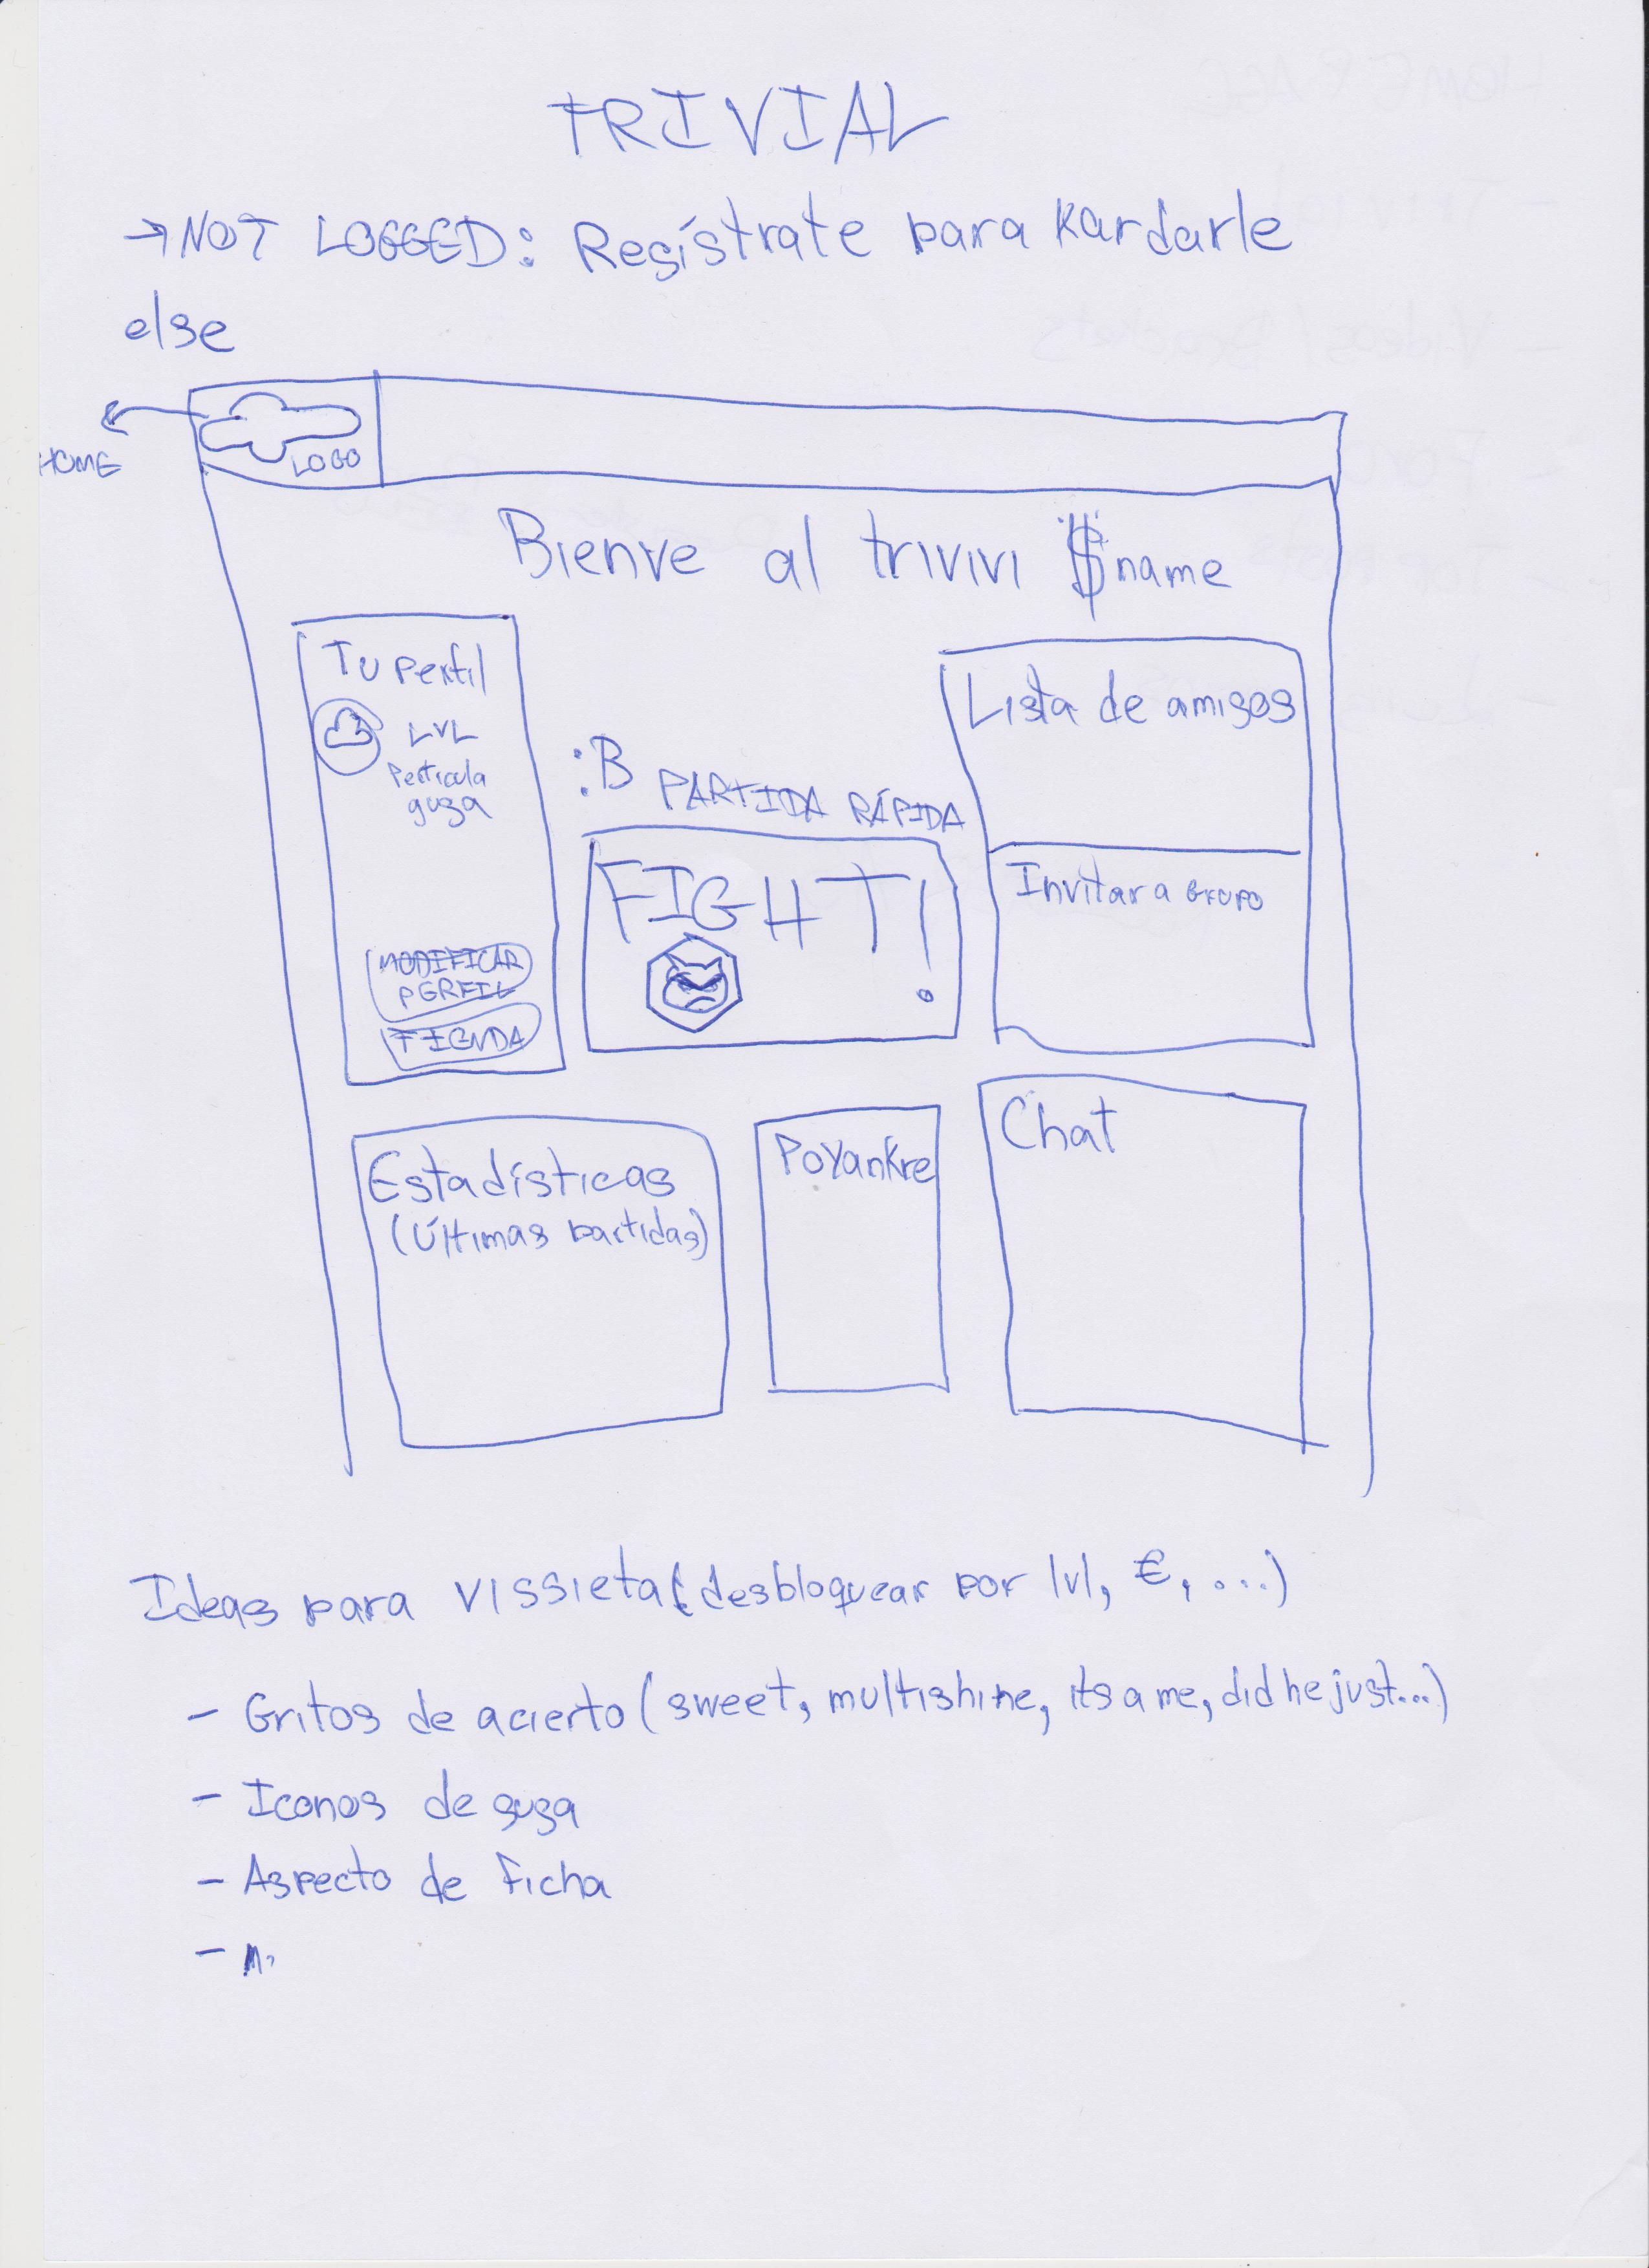 TRIVIAL
→ NOT LOGGED: Regístrate para Kardarle
else
HOME
LOGO
Bienve al trivivi $name
Tu Perfil
LVL
Pertícula
guga
MODIFICAR
PERFIL
TIENDA
:B
PARTIDA RÁPIDA
FIGHT!
Lista de amigos
Invitar a Grupo
Estadísticas
(Últimas partidas)
PoYanKre
Chat
Ideas para vissieta (desbloquear por lvl, €, ...)
- Gritos de acierto (sweet, multishine, its a me, did he just...)
- Iconos de guga
- Aspecto de ficha
-